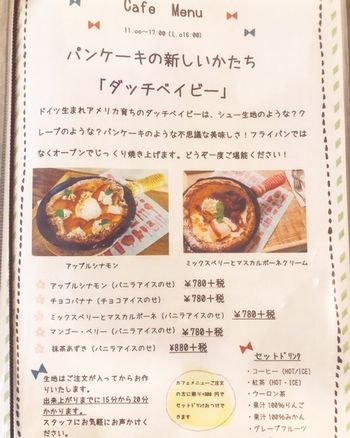 Cafe Menu
11:00~17:00 (L.o16:00)
パンケーキの新しいかたち
「ダッチベイビー」
ドイツ生まれアメリカ育ちのダッチベイビーは、シュー生地のような?ク
レープのような?パンケーキのような不思議な美味しさ!フライパンでは
なくオーブンでじっくり焼き上げます。どうぞ一度ご堪能ください!
アップルシナモン
ミックスベリーとマスカルポーネクリーム
アップルシナモン(バニラアイスのせ) ¥780+税
チョコバナナ(チョコアイスのせ) ¥780+税
ミックスベリーとマスカルポーネ(バニラアイスのせ) ¥780+税
マンゴー・ベリー(バニラアイスのせ) ¥780+税
抹茶あずき(バニラアイスのせ) ¥880+税
生地はご注文が入ってからお作
りいたします。
出来上がりまでに15分から20分
かかります。
スタッフにお気軽にお声かけく
ださい。
カフェメニューご注文
の方に限り+300円で
セットドリンクおつけで
きます
セットドリンク
・コーヒー(HOT/ICE)
・紅茶(HOT・ICE)
・ウーロン茶
・果汁100%りんご
・果汁100%みかん
・グレープフルーツ